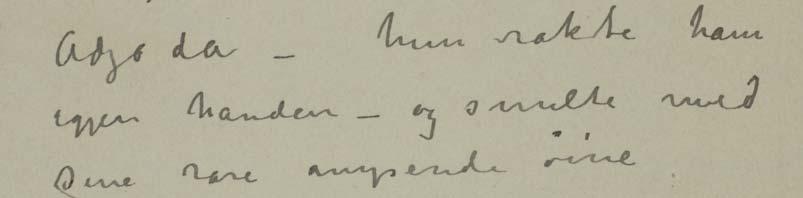 Adjø da — hun rakte ham
igjen handen — og smilte med
sine rare mysende öine